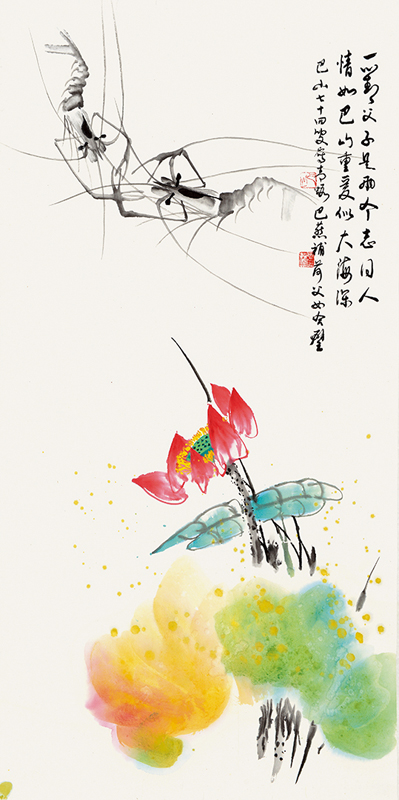 一對父子是兩个志同人
情如巴山重爱似大海深
巴山七十四叟 青 巴蕉補荷父女合璧